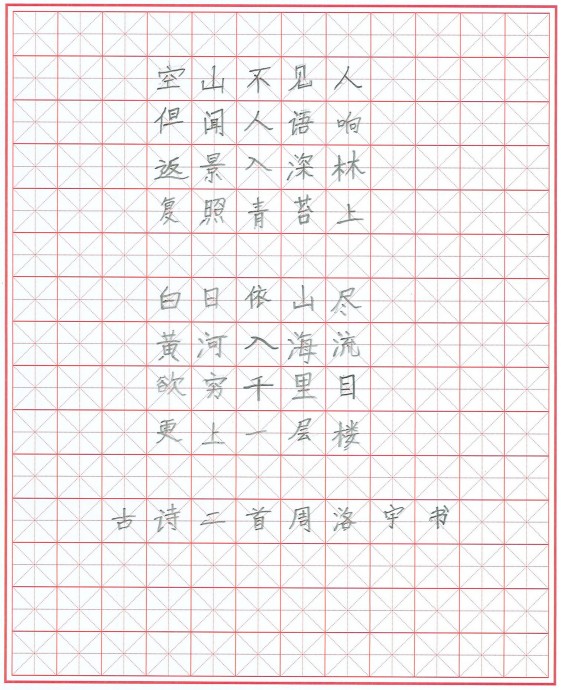 空山不见人
但闻人语响
返景入深林
复照青苔上
白日依山尽
黄河入海流
欲穷千里目
更上一层楼
古诗二首周洛宇书